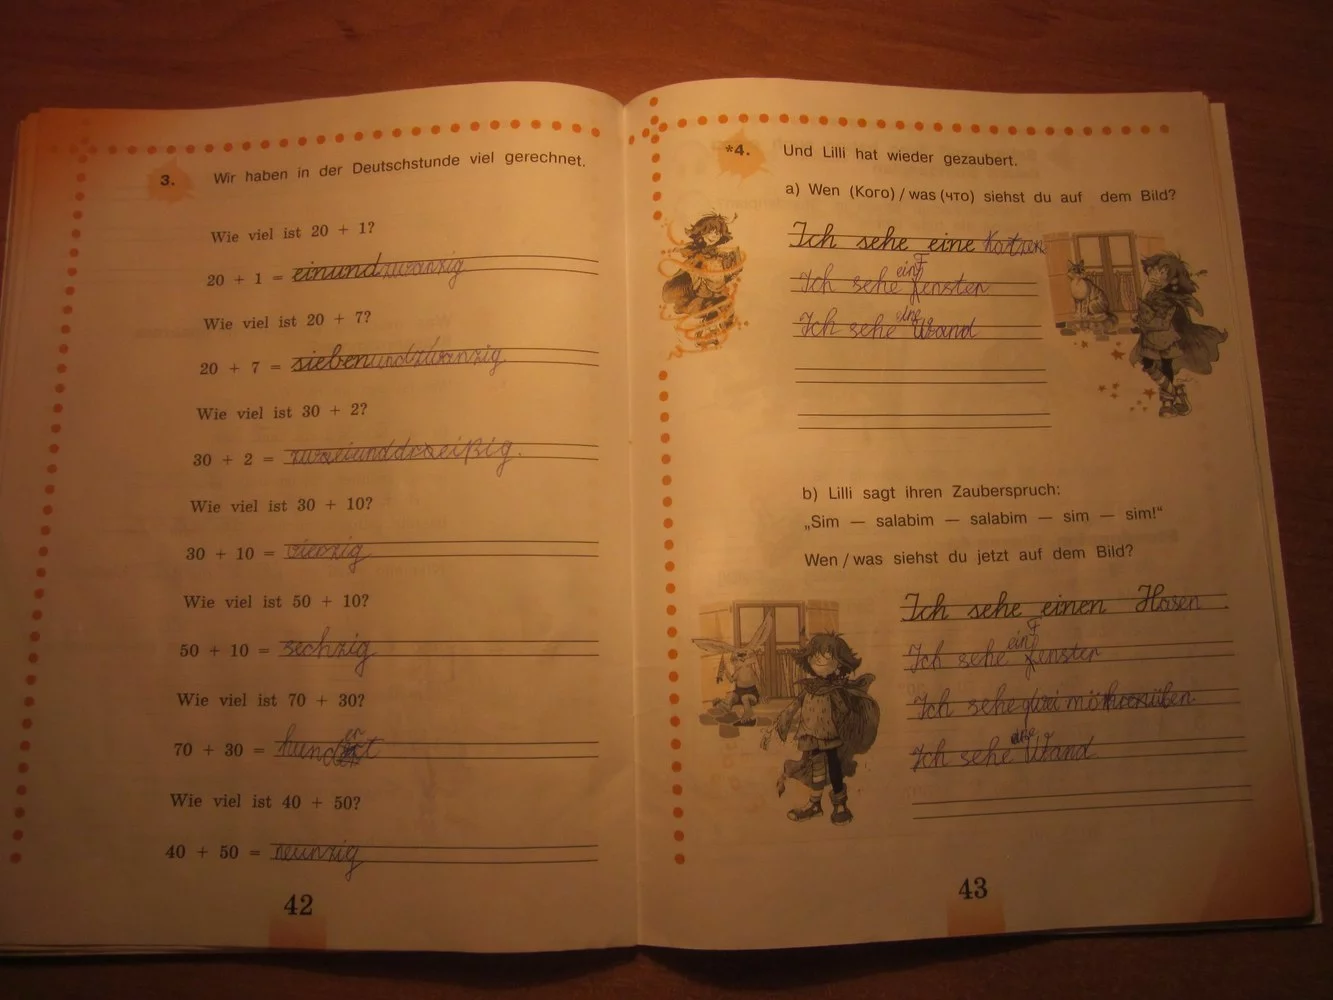 3. Wir haben in der Deutschstunde viel gerechnet.
Wie viel ist 20 + 1?
20 + 1 = einundzwanzig
Wie viel ist 20 + 7?
20 + 7 = siebenundzwanzig
Wie viel ist 30 + 2?
30 + 2 = zweiunddreißig.
Wie viel ist 30 + 10?
30 + 10 = vierzig
Wie viel ist 50 + 10?
50 + 10 = sechzig
Wie viel ist 70 + 30?
70 + 30 = hundert
Wie viel ist 40 + 50?
40 + 50 = neunzig
42
*4. Und Lilli hat wieder gezaubert.
a) Wen (Кого) / was (что) siehst du auf dem Bild?
Ich sehe eine Katzen
Ich sehe ein Fenster
Ich sehe eine Wand
b) Lilli sagt ihren Zauberspruch:
„Sim — salabim — salabim — sim — sim!“
Wen / was siehst du jetzt auf dem Bild?
Ich sehe einen Hasen.
Ich sehe ein Fenster
Ich sehe zwei
Ich sehe eine Wand
43